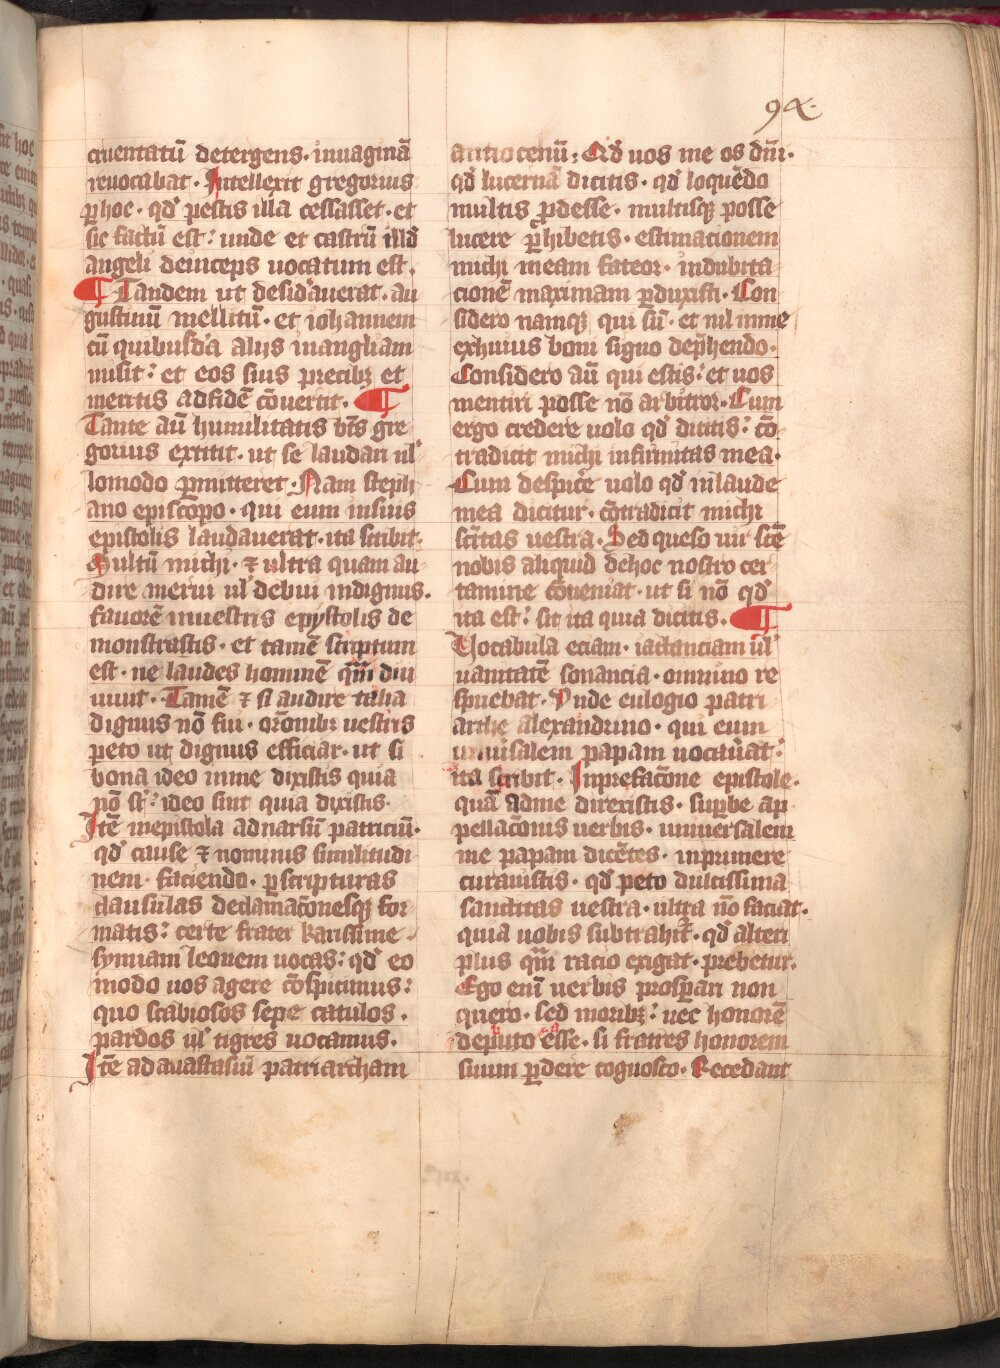 94.
cruentatū detergens· inuaginā
reuocabat· Intellexit gregorius
ꝑ hoc· qđ pestis illa cessasset· et
sic factū est: unde et castrū illđ
angeli deinceps uocatum est.
¶ Tandem ut desid'auerat· au
gustinū mellitū· et iohannem
cū quibusd'a alijs in angliam
misit: et eos suis precibꝫ et
meritis ad fidē ꝯ̄uertit· ¶
Tante aū humilitatis bt̄s gre
gorius extitit· ut se laudari ul'
lomodo ꝑmitteret· Nam steph
ano episcopo· qui eum in suis
epistolis laudauerat· ita scribit·
Multū michi· ⁊ ultra quam au
dire merui ul' debui indignus·
fauorē in uestris epystolis de
monstrastis· et tamē scriptum
est· ne laudes hominē qm̄ diu
uiuit· Tamē ⁊ si audire talia
dignus nō fui· or̄onibꝫ uestris
peto ut dignus efficiar· ut si
bona ideo in me dixistis quia
nō st̄: ideo sint quia dixistis·
Itē in epistola ad narsū patriciū·
qđ cause ⁊ nominis similitudi
nem· faciendo· ꝑ scripturas
clausulas declamac̄onesqꝫ for
matis: certe frater karissime
symiam leonem uocas: qđ eo
modo uos agere cōspicimus:
quo scabiosos sepe catulos·
pardos ul' tigres uocamus·
Itē ad anastasiū patriarcham
antiocenū, Qđ uos me os dn̄i·
qđ lucernā dicitis· qđ loquēdo
multis ꝓdesse· multisqꝫ posse
lucere ꝑhibetis· estimacionem
michi meam fateor· in dubita
cionē maximam ꝑduxisti· Con
sidero namqꝫ qui sū· et nil in me
ex huius boni signo dephendo·
Considero aū qui estis: et uos
mentiri posse nō arbitror· Cum
ergo credere uolo qđ dicitis: cō
tradicit michi infirmitas mea·
Cum despic'e uolo qđ in laude
mea dicitur· cōtradicit michi
sc̄itas uestra· Sed queso uir sc̄e
nobis aliquid de hoc nostro cer
tamine cōueniat· ut si nō qđ
ita est: sit ita quia dicitis· ¶
Vocabula eciam· iactanciam ul'
uanitatē sonancia· omnino re
spuebat· Vnde eulogio patri
arche alexandrino· qui eum
uniu'salem papam uocau'at:
ita scribit· In prefac̄one epistole·
quā ad me direxistis· suꝑbe ap
pellac̄onis uerbis· uniuersalem
me papam dicētes· inprimere
curauistis· qđ peto dulcissima
sanctitas uestra· ultra nō faciat·
quia uobis subtrahit̄· qđ alteri
plus qm̄ racio exigat· prebetur·
Ego eni̅ uerbis prosꝑari non
quero· sed moribꝫ: nec honorē
deputo esse· si fratres honorem
suum ꝑdere cognosco· Recedant